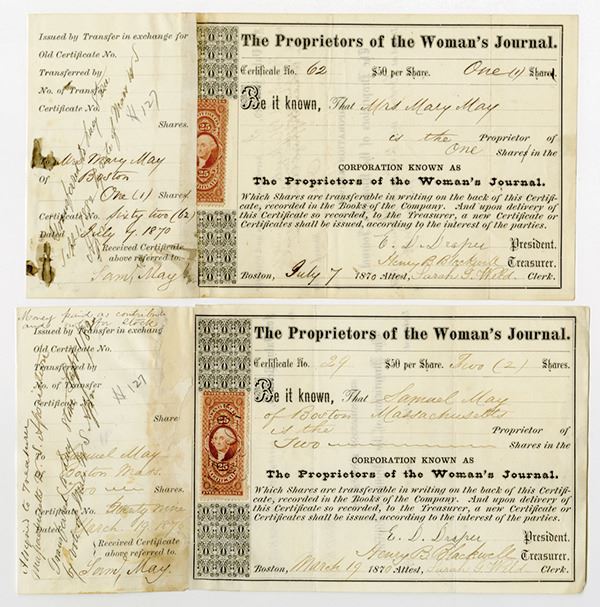 Issued by Transfer in exchange for
Old Certificate No.
Transferred by
No. of Transfer
Certificate No.
H 127
Shares.
To Mrs Mary May
Of Boston
One (1) Shares
Certificate No. Sixty two (62)
Dated July 7 1870
Received Certificate
above referred to.
Sam, May
The Proprietors of the Woman's Journal.
Certificate No. 62 $50 per Share. One (1) Share
Be it known, That Mrs Mary May
is the Proprietor of
One Shares in the
CORPORATION KNOWN AS
The Proprietors of the Woman's Journal.
Which Shares are transferable in writing on the back of this Certifi-
cate, recorded in the Books of the Company. And upon delivery of
this Certificate so recorded, to the Treasurer, a new Certificate or
Certificates shall be issued, according to the interest of the parties.
E. D. Draper President.
Henry B Blackwell Treasurer.
Boston, July 7 1870 Attest, Sarah G. Wild Clerk.
25
25
Money paid as contribution
Issued by Transfer in exchang
Old Certificate No.
Transferred by
No. of Transfer
Certificate No.
H 127
Share
To Samuel May
Of Boston Mass.
Two Shares.
Certificate No.
Dated March 19 1870
Received Certificate
above referred to.
Sam, May.
The Proprietors of the Woman's Journal.
Certificate No. 29 $50 per Share. Two (2) Shares.
Be it known, That Samuel May
of Boston Massachusetts
is the Proprietor of
Two Shares in the
CORPORATION KNOWN AS
The Proprietors of the Woman's Journal.
Which Shares are transferable in writing on the back of this Certifi-
cate, recorded in the Books of the Company. And upon delivery of
this Certificate so recorded, to the Treasurer, a new Certificate or
Certificates shall be issued, according to the interest of the parties.
E. D. Draper President.
Henry B Blackwell Treasurer.
Boston, March 19 1870 Attest, Sarah G. Wild Clerk.
25
25